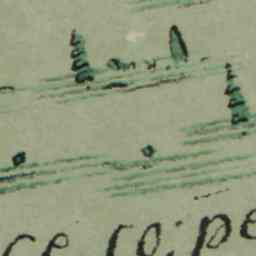 ce co: pe